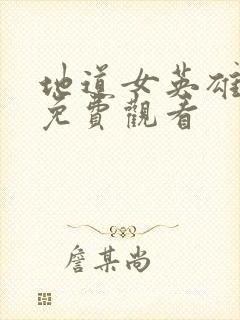 地道女英雄
免費觀看
詹某尚